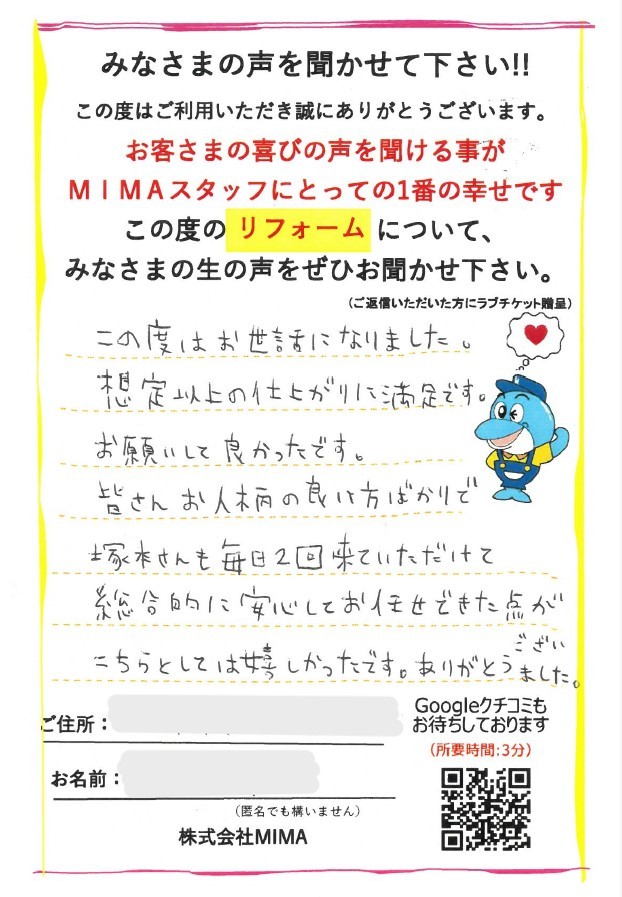 みなさまの声を聞かせて下さい!!
この度はご利用いただき誠にありがとうございます。
お客さまの喜びの声を聞ける事が
MIMAスタッフにとっての1番の幸せです
この度の リフォーム について、
みなさまの生の声をぜひお聞かせ下さい。
(ご返信いただいた方にラブチケット贈呈)
この度はお世話になりました。
想定以上の仕上がりに満足です。
お願いして良かったです。
皆さんお人柄の良い方ばかりで
塚本さんも毎日2回来ていただけて
総合的に安心してお任せできた点が
こちらとしては嬉しかったです。ありがとうございました。
ご住所:
お名前:
(匿名でも構いません)
株式会社MIMA
Googleクチコミも
お待ちしております
(所要時間:3分)